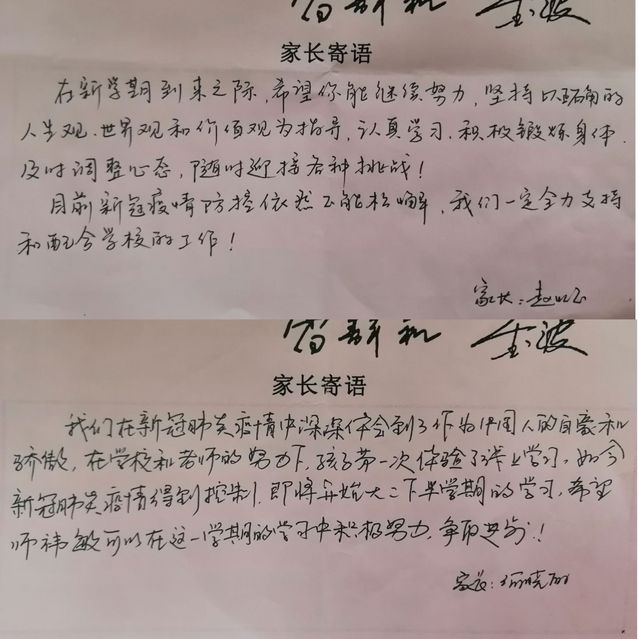 家长寄语
在新学期到来之际,希望你能继续努力,坚持以正确的
人生观、世界观和价值观为指导,认真学习,积极锻炼身体,
及时调整心态,随时迎接各种挑战!
目前新冠疫情防控依然不能松懈,我们一定全力支持
和配合学校的工作!
家长:赵
金波
家长寄语
我们在新冠肺炎疫情中深深体会到了作为中国人的自豪和
骄傲,在学校和老师的努力下,孩子第一次体验了线上学习,如今
新冠肺炎疫情得到控制,即将开始大二下半学期的学习,希望
师祎敏可以在这一学期的学习中积极努力,争取进步!
家长:晓